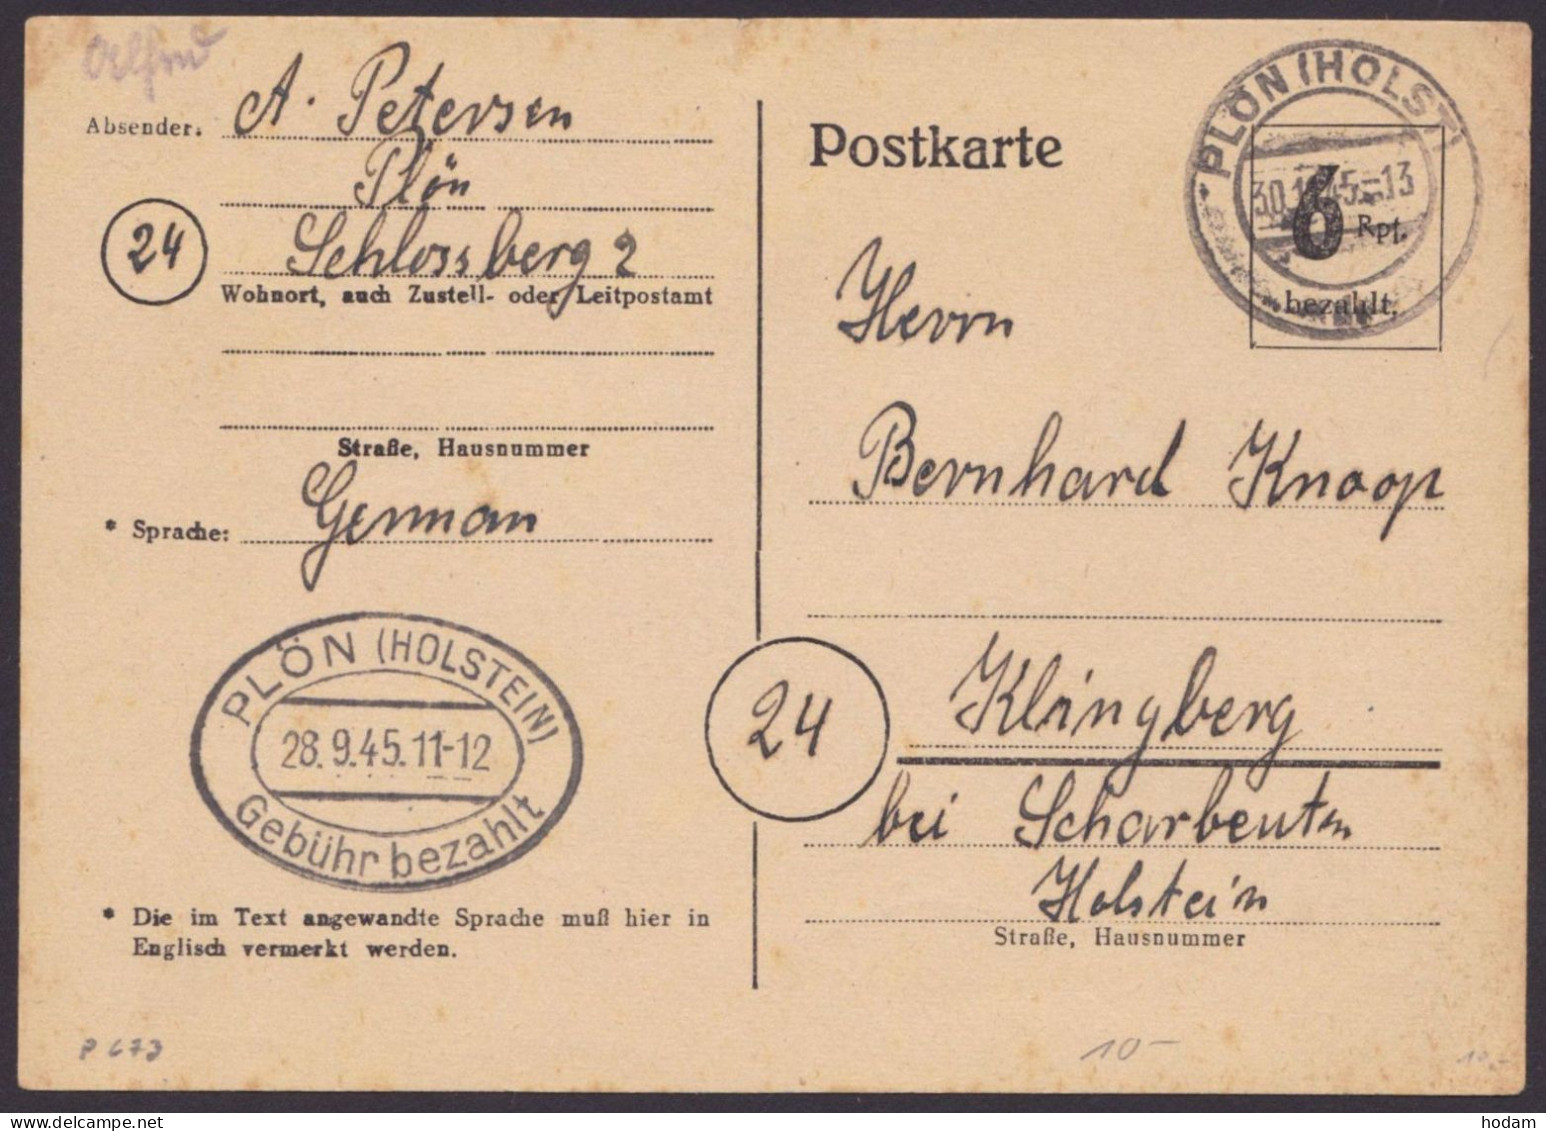 Absender: A. Petersen
Plön
24
Schlossberg 2
Wohnort, auch Zustell- oder Leitpostamt
Straße, Hausnummer
* Sprache: German
PLÖN (HOLSTEIN)
28.9.45.11-12
Gebühr bezahlt
* Die im Text angewandte Sprache muß hier in
Englisch vermerkt werden.
P 673
Postkarte
PLÖN (HOLST)
6 Rpf.
bezahlt.
Herrn
Bernhard Knoop
24
Klingberg
bei Scharbeutz
Holstein
Straße, Hausnummer
10-
10,-
hodam